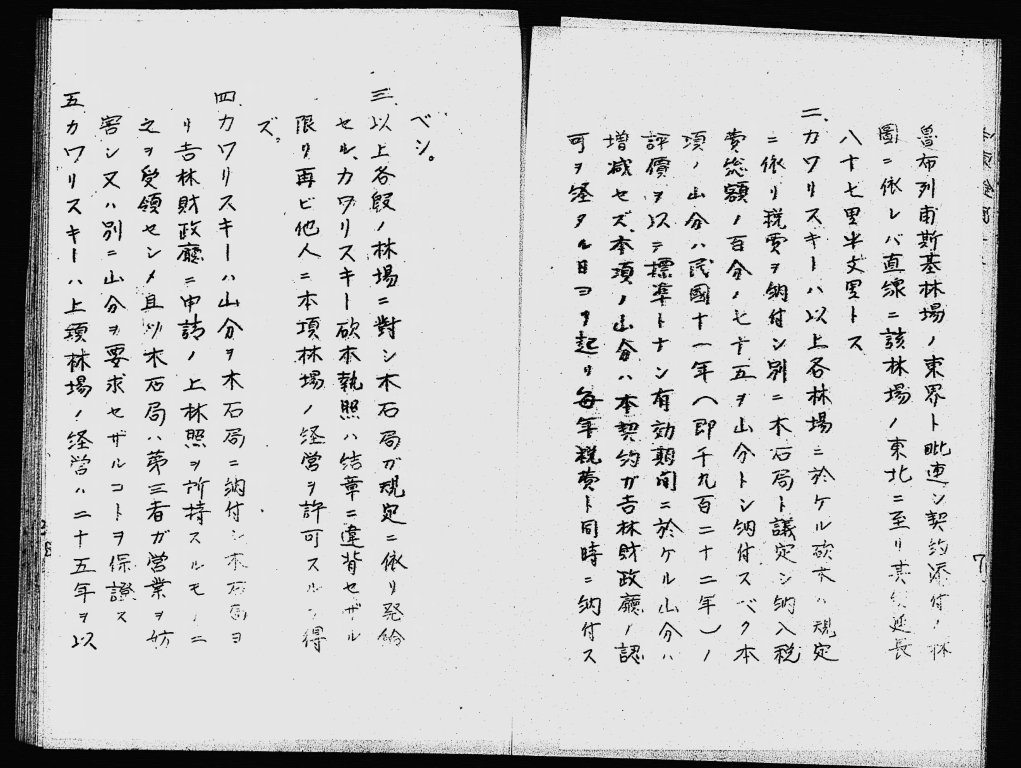 魯布列甫斯基林場ノ東界ト毗連シ契約添付ノ林
圖ニ依レバ直線ニ該林場ノ東北ニ至リ其ノ延長
八十七里半丈里トス
二、カワリスキーハ以上各林場ニ於ケル砍木ハ規定
ニ依リ税費ヲ納付シ別ニ木石局ト議定シ納入税
費総額ノ百分ノ七十五ヲ山分トシ納付スベク本
項ノ山分ハ民國十一年(即千九百二十二年)ノ
評價ヲ以テ標準トナシ有効期间ニ於ケル山分ハ
増減セズ、本項ノ山分ハ本契約ガ吉林財政廳ノ認
可ヲ経タル日ヨリ起リ毎年税費ト同時ニ納付ス
7
ベシ。
三、以上各段ノ林場ニ對シ木石局ガ規定ニ依リ発給
セル、カワリスキー砍木執照ハ結章ニ違背セザル
限リ再ビ他人ニ本項林場ノ経営ヲ許可スルヲ得
ズ。
四、カワリスキーハ山分ヲ木石局ニ納付シ木石局ヨ
リ吉林財政廳ニ申請ノ上林照ヲ所持スルモノニ
之ヲ受領セシメ且ツ木石局ハ第三者ガ営業ヲ妨
害シ又ハ別ニ山分ヲ要求セザルコトヲ保證ス
五、カワリスキーハ上項林場ノ経営ハ二十五年ヲ以